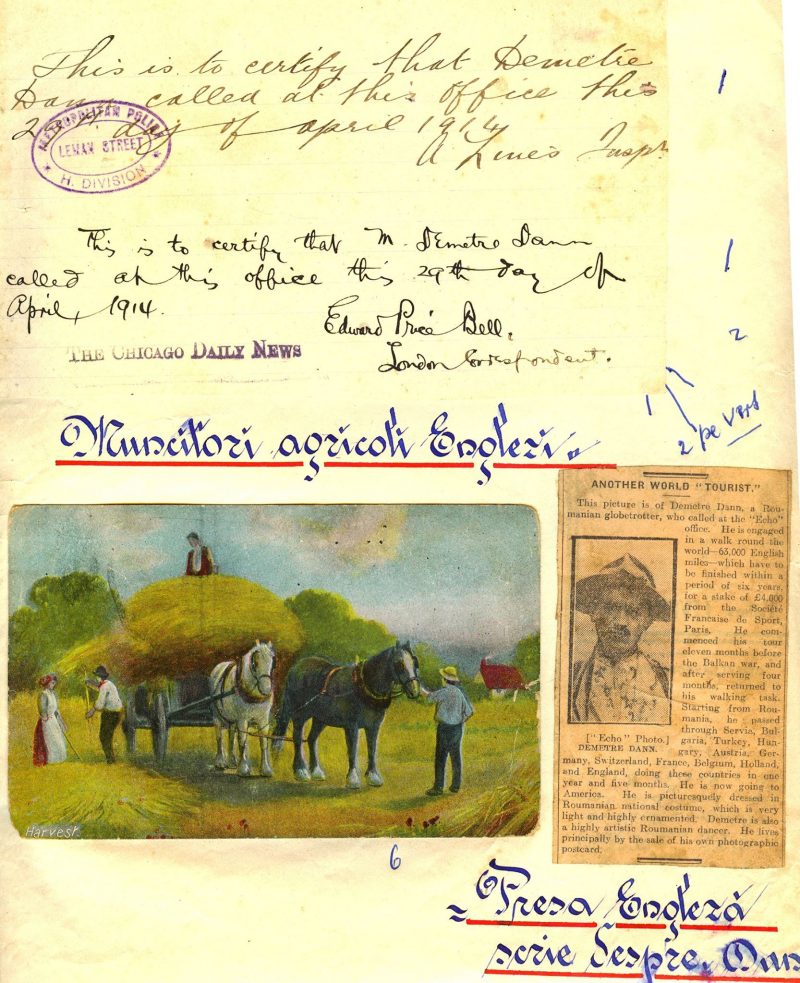 This is to certify that Demetre
Dann called at this office this
28th day of april 1914
A Lines Inspr
METROPOLITAN POLICE
LEMAN STREET
H. DIVISION
1
This is to certify that M. Demetre Dann
called at this office this 29th day of
April, 1914.
Edward Price Bell,
London Correspondent.
THE CHICAGO DAILY NEWS
1
2
1
2 pe vers
Muncitori agricoli Englezi
Harvest.
6
ANOTHER WORLD "TOURIST."
This picture is of Demetre Dann, a Rou-
manian globetrotter, who called at the "Echo"
office. He is engaged
in a walk round the
world—63,000 English
miles—which have to
be finished within a
period of six years,
for a stake of £4,000
from the Société
Francaise de Sport,
Paris. He com-
menced his tour
eleven months before
the Balkan war, and
after serving four
months, returned to
his walking task.
Starting from Rou-
mania, he passed
through Servia, Bul-
garia, Turkey, Hun-
gary, Austria, Ger-
many, Switzerland, France, Belgium, Holland,
and England, doing these countries in one
year and five months. He is now going to
America. He is picturesquely dressed in
Roumanian national costume, which is very
light and highly ornamented. Demetre is also
a highly artistic Roumanian dancer. He lives
principally by the sale of his own photographic
postcard.
["Echo" Photo.]
DEMETRE DANN.
= Presa Engleză
scrie despre. Dan